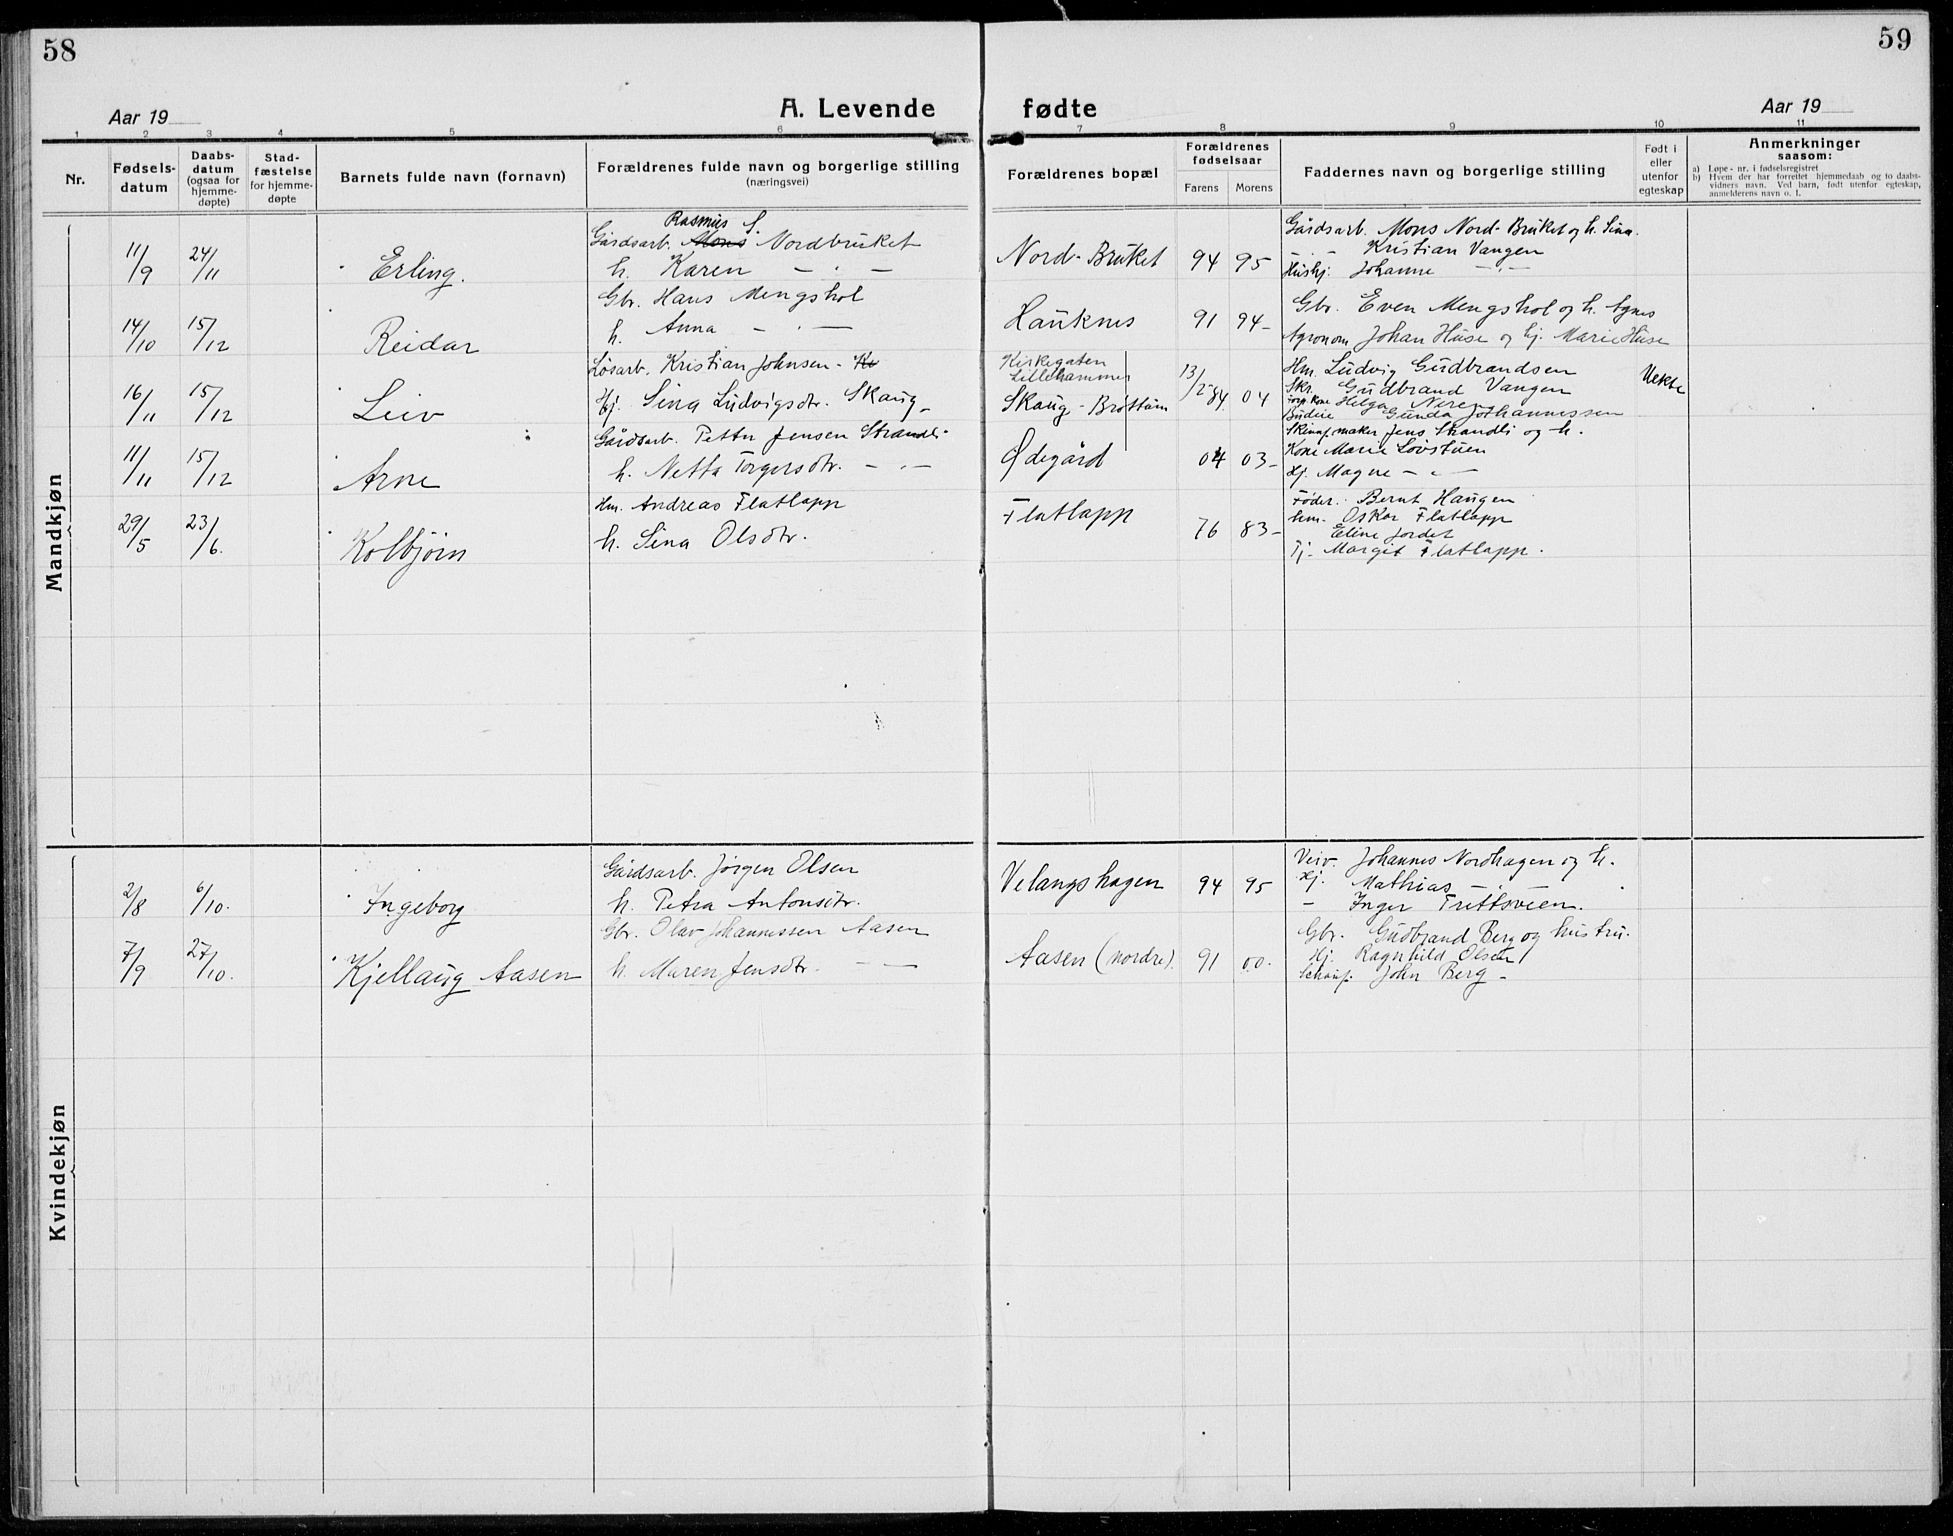 58
59
Aar 19
A. Levende fødte
Aar 19
1 2 3 4 5 6 7 8 9 10 11
Nr.
Fødsels-
datum
Daabs-
datum
(ogsaa for
hjemme-
døpte)
Stad-
fæstelse
for hjemme-
døpte
Barnets fulde navn (fornavn)
Forældrenes fulde navn og borgerlige stilling
(næringsvei)
Forældrenes bopæl
Forældrenes
fødselsaar
Farens Morens
Faddernes navn og borgerlige stilling
Født i
eller
utenfor
egteskap
Anmerkninger
saasom:
a) Løpe-nr. i fødselsregistret
b) Hvem der har forrettet hjemmedaab og to daabs-
vidners navn. Ved barn, født utenfor egteskap,
anmelderens navn o. l.
Mandkjøn
Rasmus S.
Gårdsarb. Mons Nordbruket
11/9 24/11 Erling. h. Karen — " —
Nord-Bruket 94 95
Gårdsarb. Mons Nord-Bruket og h. Sina.
— " — Kristian Vangen
Hushj. Johanne — " —
Gbr. Hans Mengshol
14/10 15/12 Reidar h. Anna — " —
Hauknes 91 94-
Gbr. Even Mengshol og h. Agnes
Agronom Johan Huse og hj. Marie Huse
Løsarb. Kristian Johnsen -
16/11 15/12 Leiv Hj. Sina Ludvigsdtr. Skaug -
Kirkegaten
Lillehammer
Skaug - Brøttum
13/2 84 04
Hm. Ludvig Gudbrandsen
Skr. Gudbrand Vangen
Kone Helga Neren
Budeie Gunda Johannessen
Uekte
Gårdsarb. Petter Jensen Strandli
11/11 15/12 Arne h. Netta Torgersdtr. — " —
Ødegård 04 03-
Skinnf.maker Jens Strandli og h.
Kone Marie Løvstuen
Hj. Magne — " —
Hm. Andreas Flatlapp
29/5 23/6. Kolbjørn h. Sina Olsdtr.
Flatlapp 76 83-
Føder. Bernt Haugen
hm. Oskar Flatlapp
Eline Jordet
Tj. Margit Flatlapp.
Kvindekjøn
Gårdsarb. Jørgen Olsen
2/8 6/10. Ingeborg h. Petra Antonsdtr.
Velangshagen 94 95
Veiv. Johannes Nordhagen og h.
Hj. Mathias — " —
— Inger Trettsveen.
Gbr. Olav Johannessen Aasen
7/9 27/10. Kjellaug Aasen h. Maren Jensdtr. — —
Aasen (nordre). 91 00.
Gbr. Gudbrand Berg og hustru.
Hj. Ragnhild Olsen
John Berg -